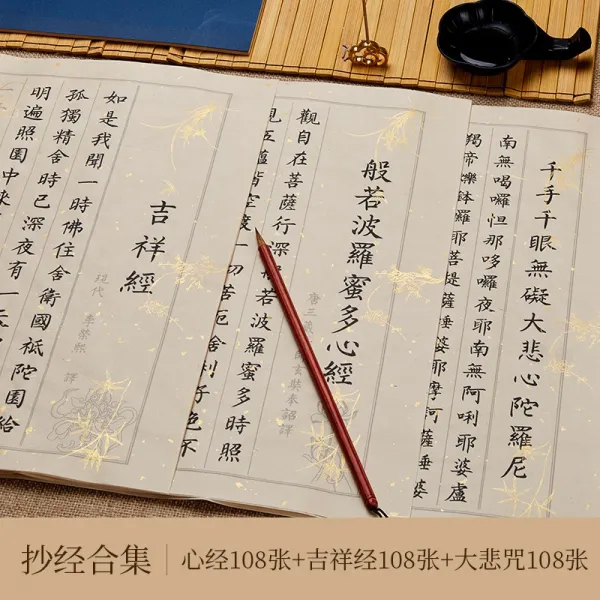 千手千眼無礙大悲心陀羅尼
南無喝囉怛那哆囉夜耶南無阿唎耶婆盧
羯帝爍鉢羅耶菩提薩埵婆耶摩訶薩埵婆
般若波羅蜜多心經
唐三藏 師玄奘奉詔譯
觀自在菩薩行深般若波羅蜜多時照
見五蘊皆空度一切苦厄舍利子色不
吉祥經
現代 李榮熙 譯
如是我聞一時佛住舍衛國祇陀園給
孤獨精舍時已深夜有一天
明遍照園中來
抄经合集 心经108张+吉祥经108张+大悲咒108张